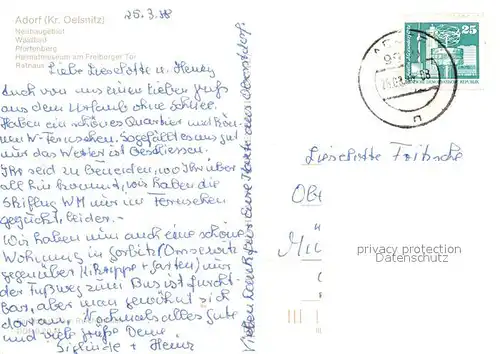 Adorf (Kr. Oelsnitz)
Neubaugebiet
Waldbad
Pfortenberg
Heimatmuseum am Freiberger Tor
Rathaus
25.3.88
Liebe Lieschotte u. Henry
Auch von uns einen lieben Gruß
aus dem Urlaub ohne Schnee.
Haben ein schönes Quartier und können
W-Fernsehen. So gefällt es uns gut
nur das Wetter ist
Ihr seid zu beneiden, wo Ihr über
all hin kommt, wir haben die
Skiflug WM nur im Fernsehen
geguckt, leider.
Wir haben nun auch eine schöne
Wohnung in Gorbitz/Omsewitz
gegenüber (Krippe + Garten) nur
der Fußweg zum Bus ist furcht-
bar, aber man gewöhnt sich
daran. Nochmals alles gute
und viele Grüße Deine
Sieglinde + Heinz
Vielen Dank für Eure Karte aus Oberstdorf.
25
Lieschotte Fritsche
privacy protection
Datenschutz